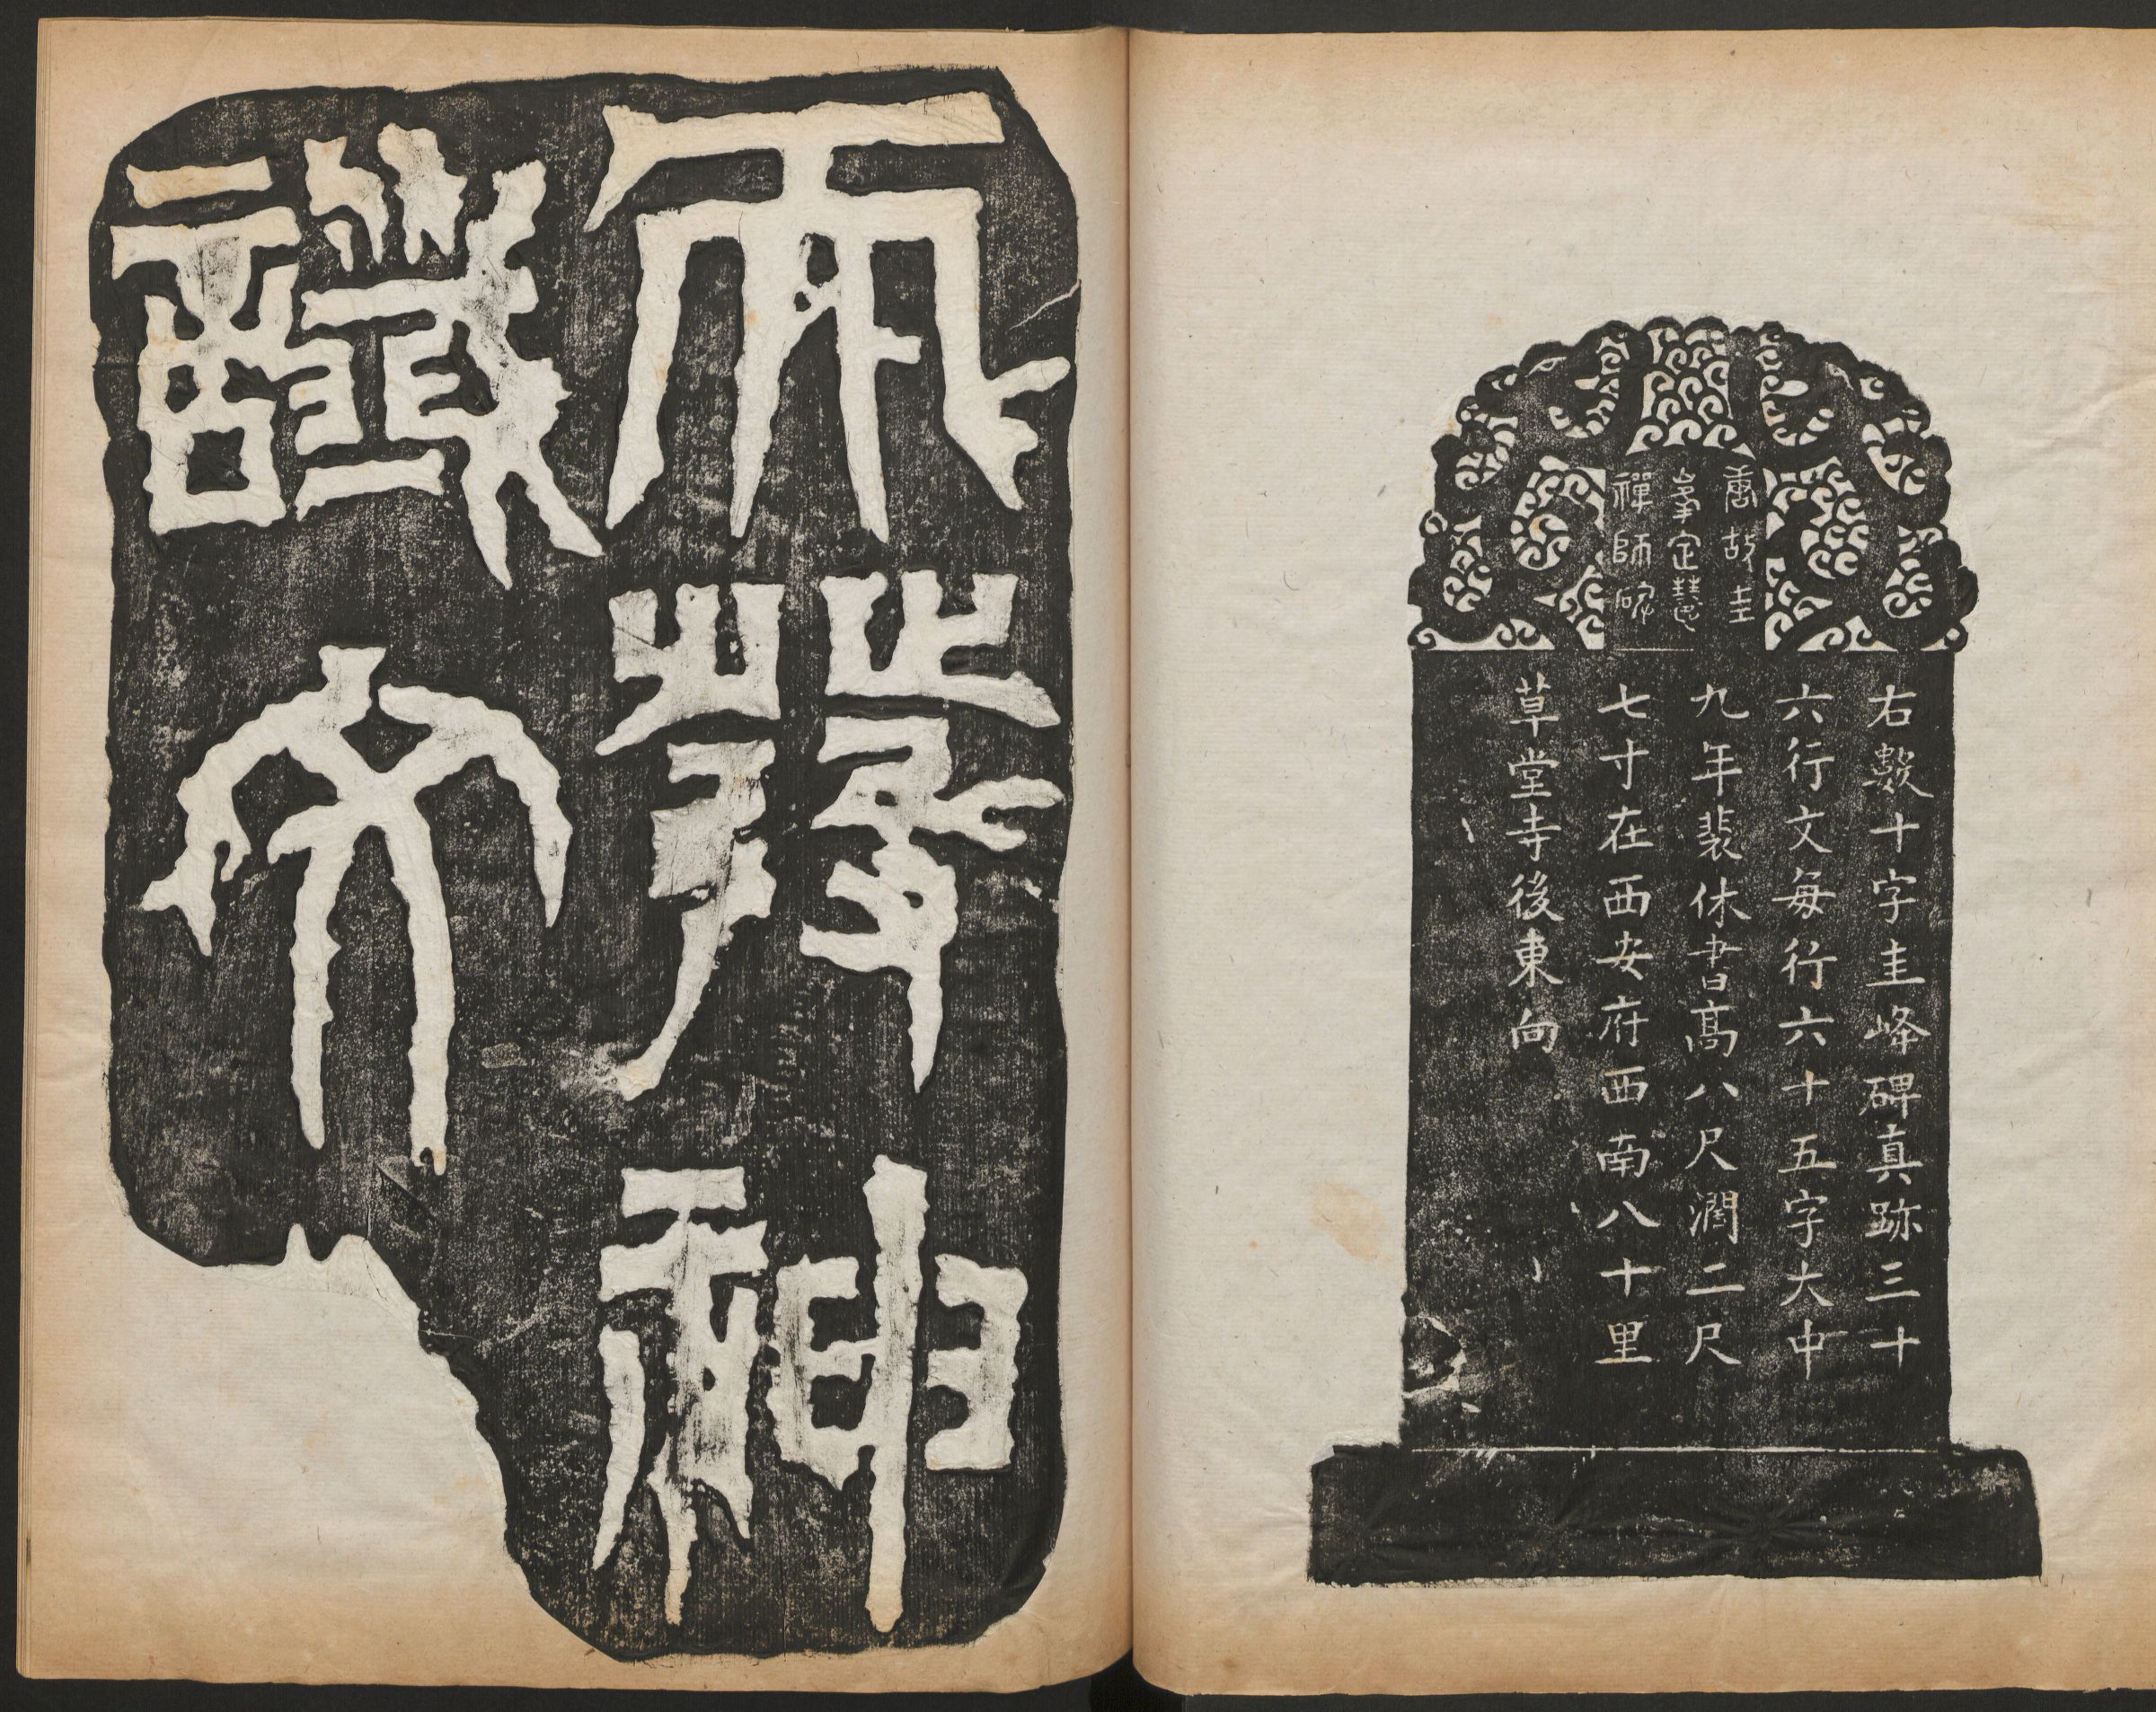 唐故圭
峯定慧
禪師碑
右數十字圭峰碑真跡三十
六行文每行六十五字大中
九年裴休書高八尺濶二尺
七寸在西安府西南八十里
草堂寺後東向
天發神
讖文